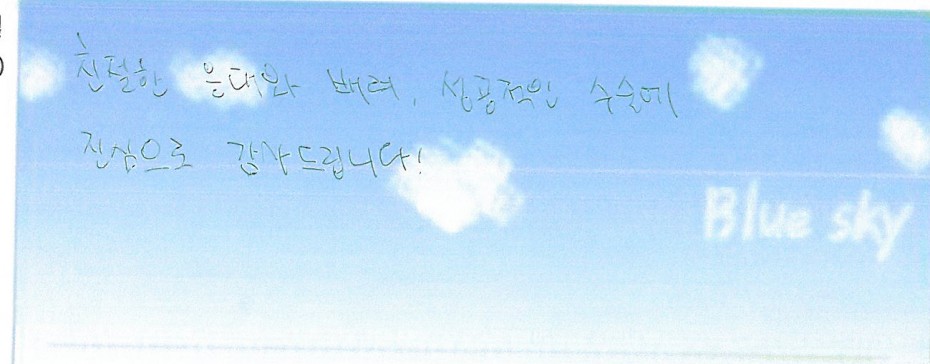 친절한 응대와 배려, 성공적인 수술에
진심으로 감사드립니다!
Blue sky